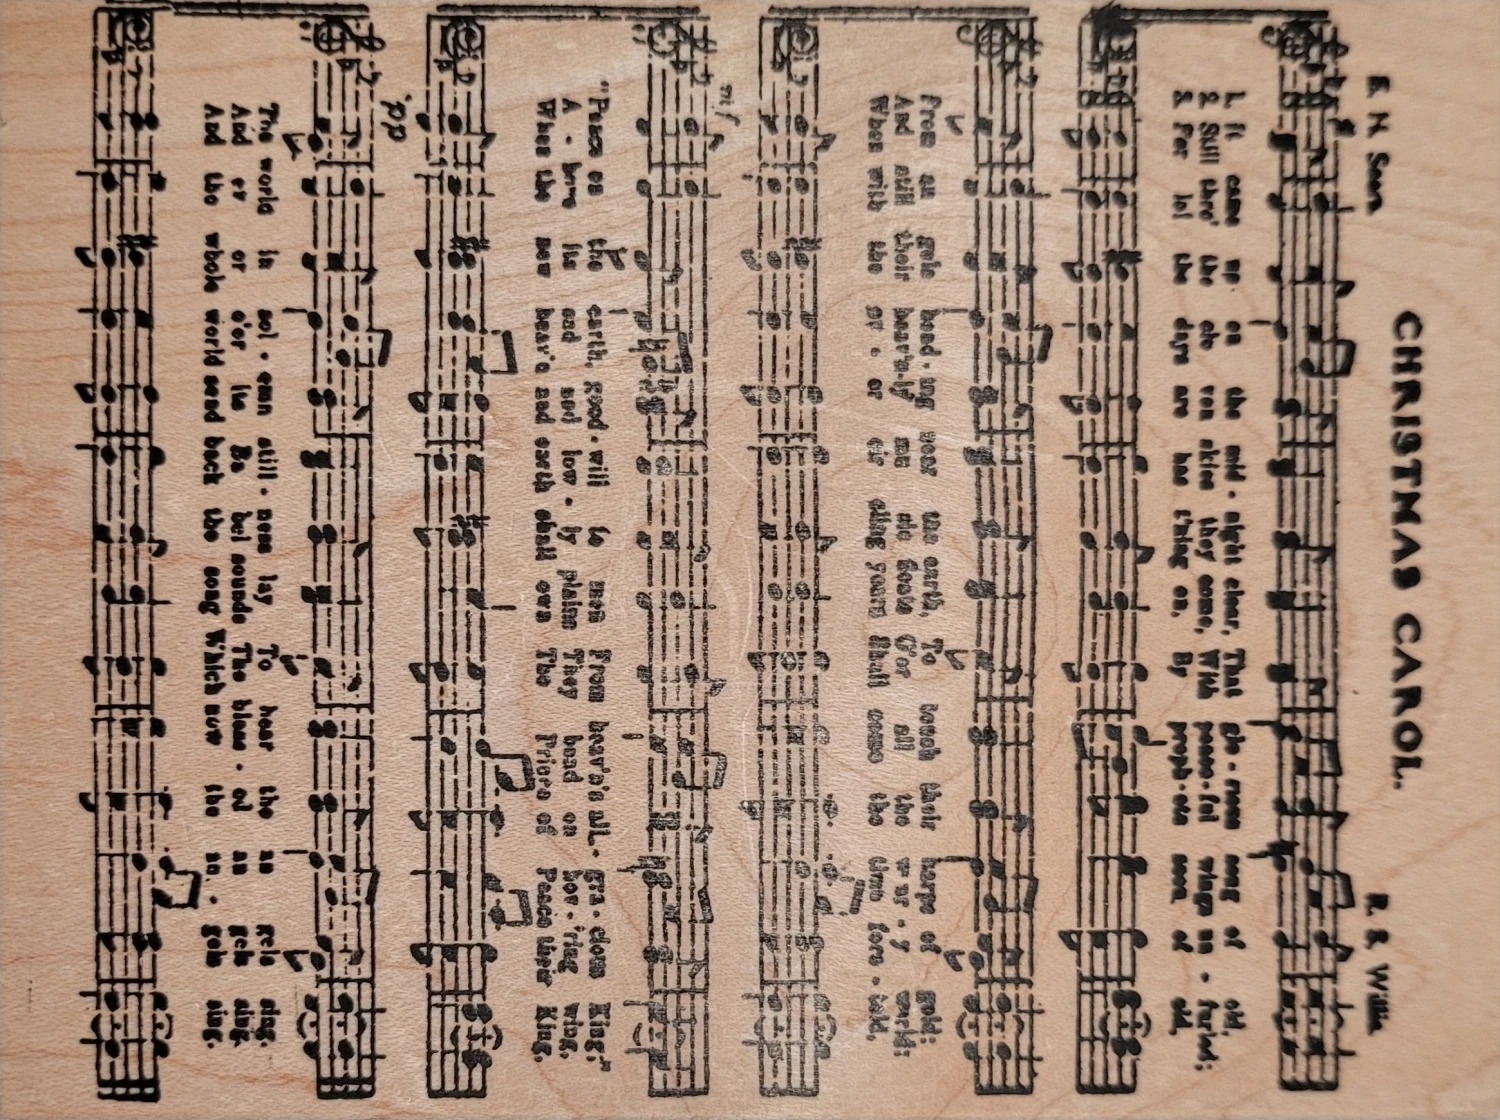 CHRISTMAS CAROL.
E. H. Sears R. S. Willis
1. It came up on the mid - night clear, That glo - rious song of old,
2. Still thro' the clo ven skies they come, With peace - ful wings un - furled;
3. For lo! the days are has t'ning on, By proph - ets seen of old,
From an gels bend - ing near the earth, To touch their harps of gold;
And still their heav'n - ly mu sic floats O'er all the w ar - y world;
When with the ev - er cir cling years Shall come the time fore - told,
mf
"Peace on the earth, good - will to men From heav'n's all - gra - cious King;"
A - bove its sad and low - ly plains They bend on hov - 'ring wing,
When the new heav'n and earth shall own The Prince of Peace their King,
pp
The world in sol - emn still - ness lay To hear the an gels sing.
And ev er o'er its Ba bel sounds The bless - ed an gels sing.
And the whole world send back the song Which now the an - gels sing.